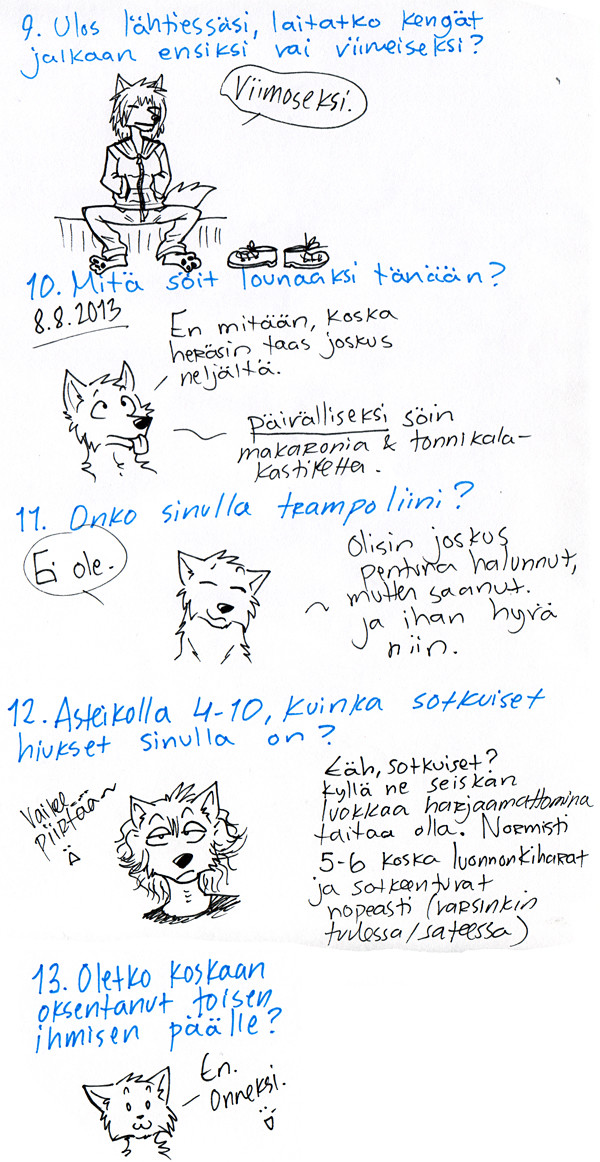 9. Ulos lähtiessäsi, laitatko kengät
jalkaan ensiksi vai viimeiseksi?
Viimoseksi.
10. Mitä söit lounaaksi tänään?
8.8.2013
En mitään, koska
heräsin taas joskus
neljältä.
päivälliseksi söin
makaronia & tonnikala-
kastiketta.
11. Onko sinulla trampoliini?
Ei ole.
Olisin joskus
pentuna halunnut,
mutten saanut.
ja ihan hyvä
niin.
12. Asteikolla 4-10, kuinka sotkuiset
hiukset sinulla on?
Vaikee
piirtää~
:D
Ääh, sotkuiset?
kyllä ne seiskan
luokkaa harjaamattomina
taitaa olla. Normisti
5-6 koska luonnonkiharat
ja sotkeentuvat
nopeasti (varsinkin
tuulessa/sateessa)
13. Oletko koskaan
oksentanut toisen
ihmisen päälle?
En.
Onneksi.
:D